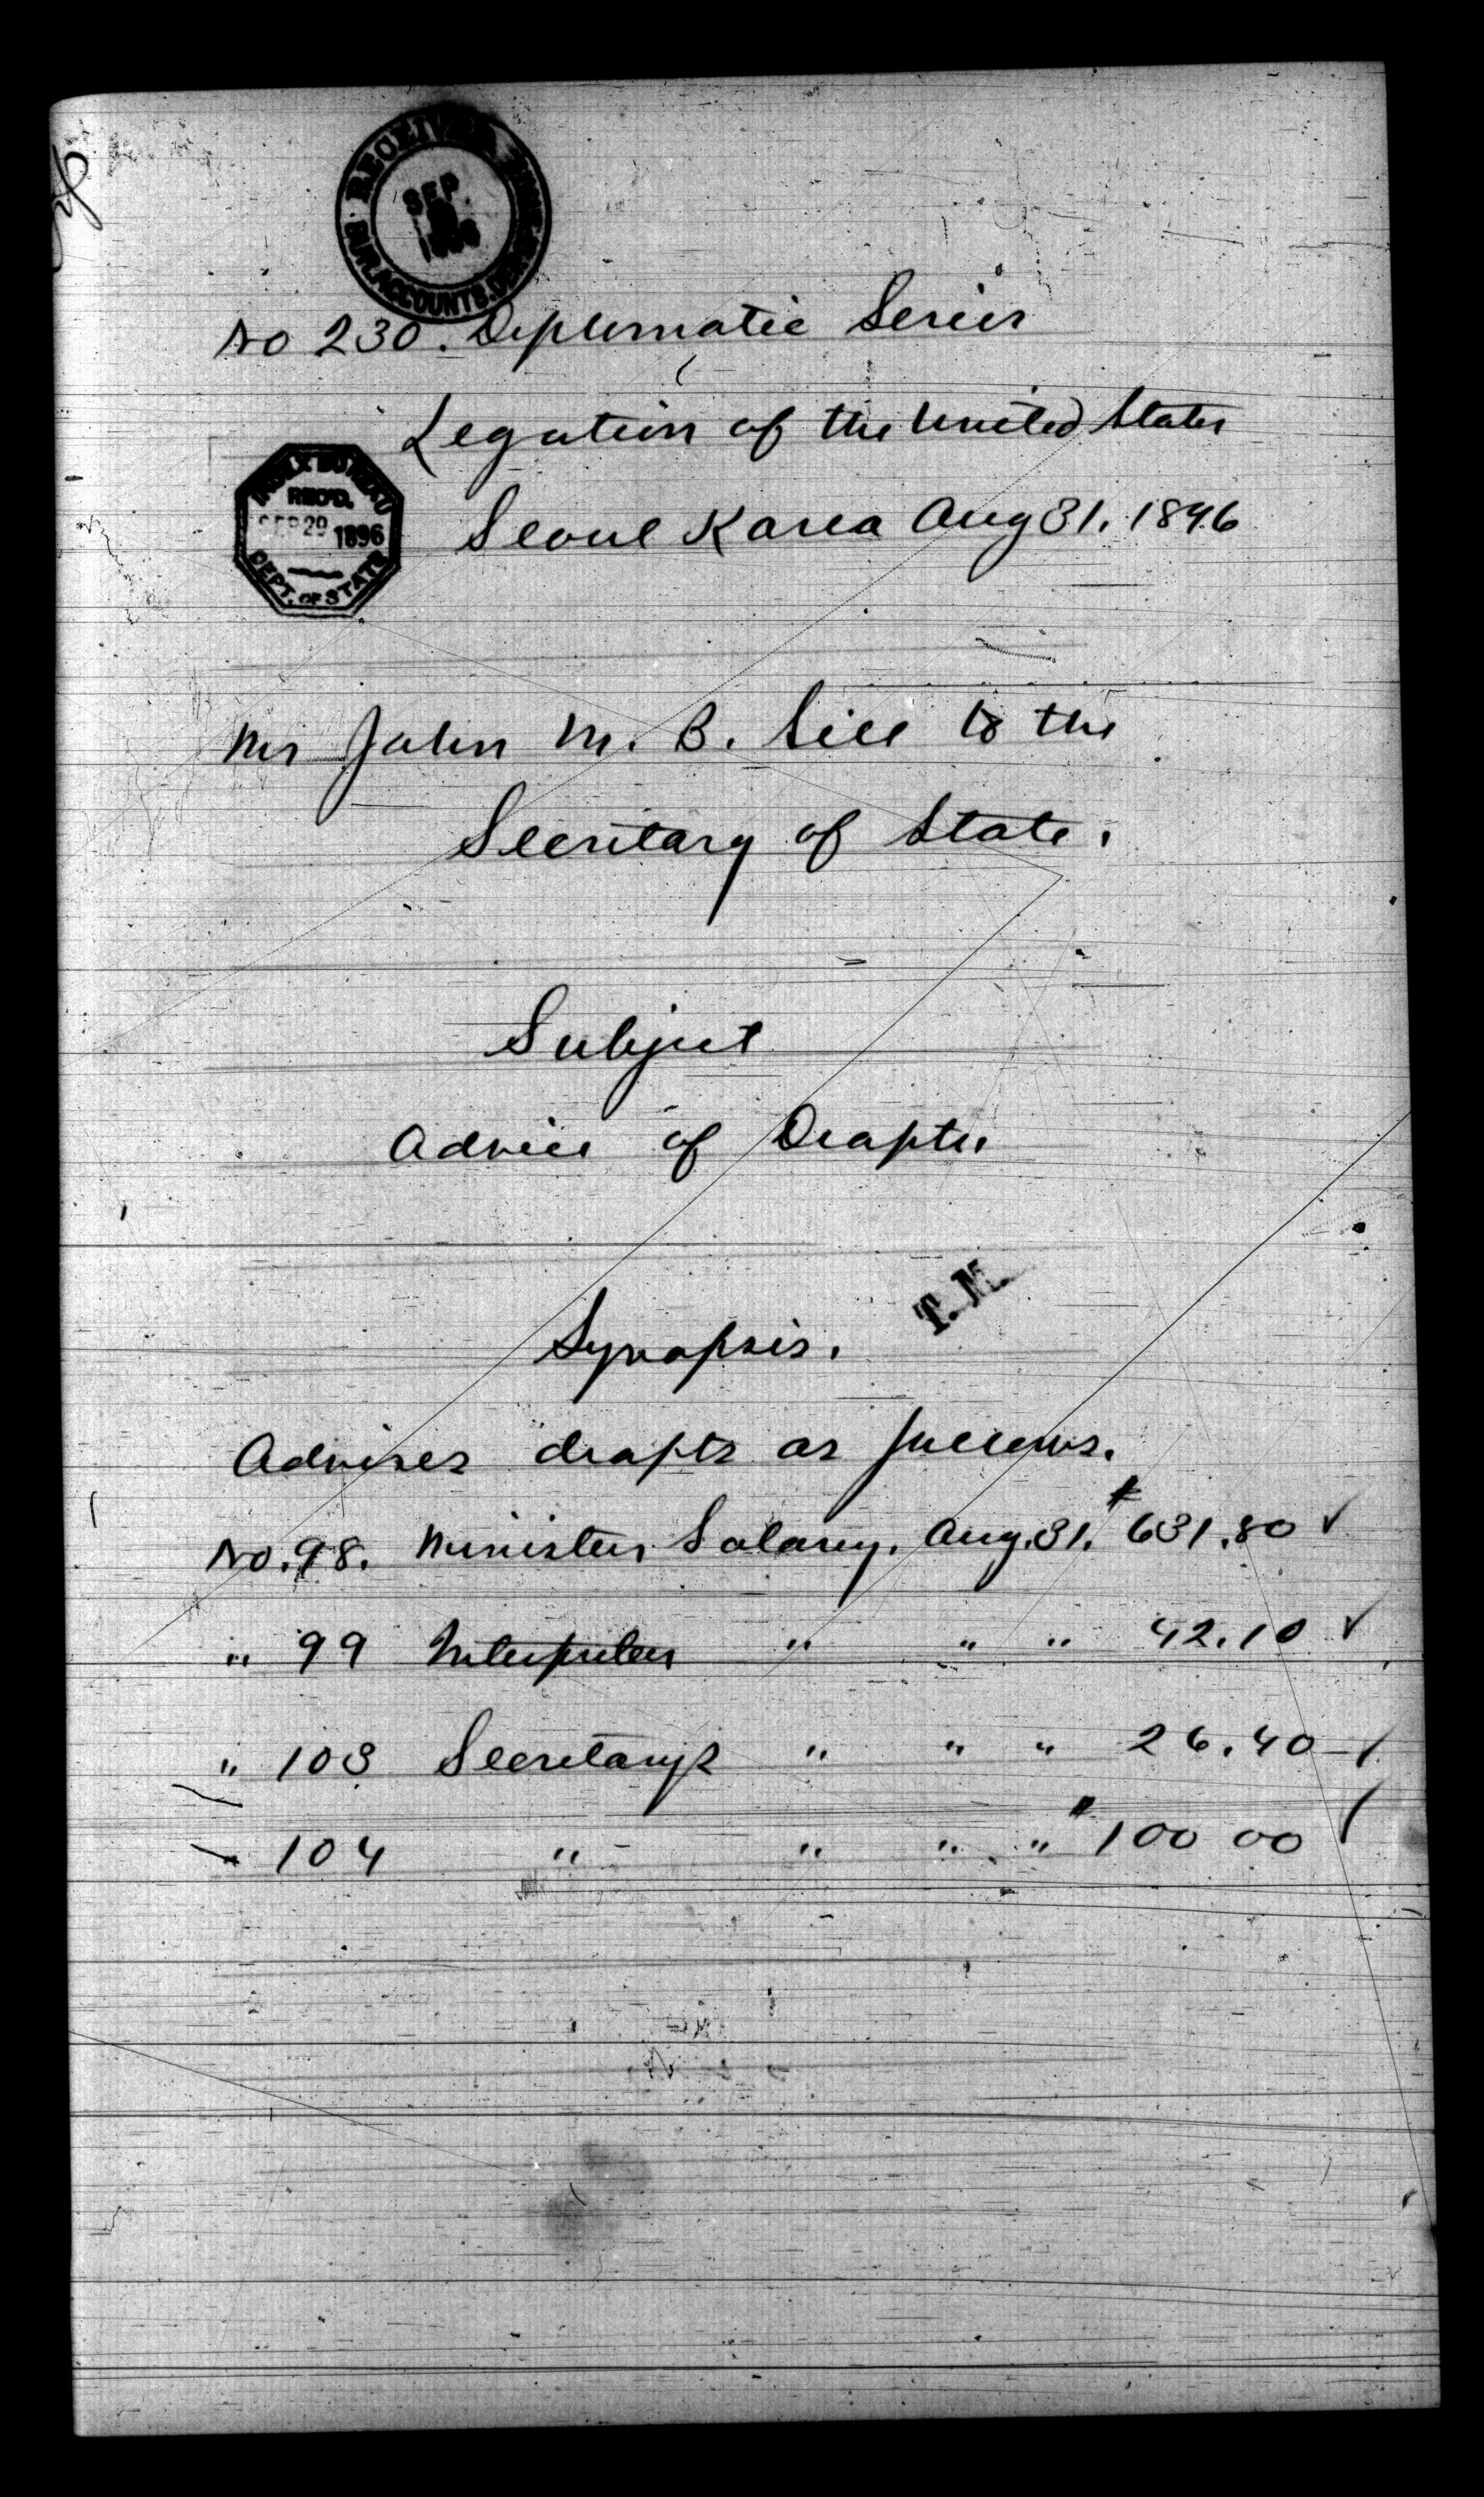 RECEIVED
SEP
BUR. ACCOUNTS.
No 230. Diplomatic Series
Legation of the United States
INDEX BUREAU
REC'D.
SEP 29 1896
DEPT. OF STATE
Seoul Korea Aug 31. 1896
Mr John M. B. Sill to the
Secretary of State.
Subject
Advice of Drafts
T. M.
Synopsis.
Advises drafts as follows.
No. 98. Ministers Salary. Aug. 31. $631.80 ✓
" 99 Interpreters " " " 42.10 ✓
" 103 Secretarys " " " 26.40 ✓
" 104 " " " " $100 00